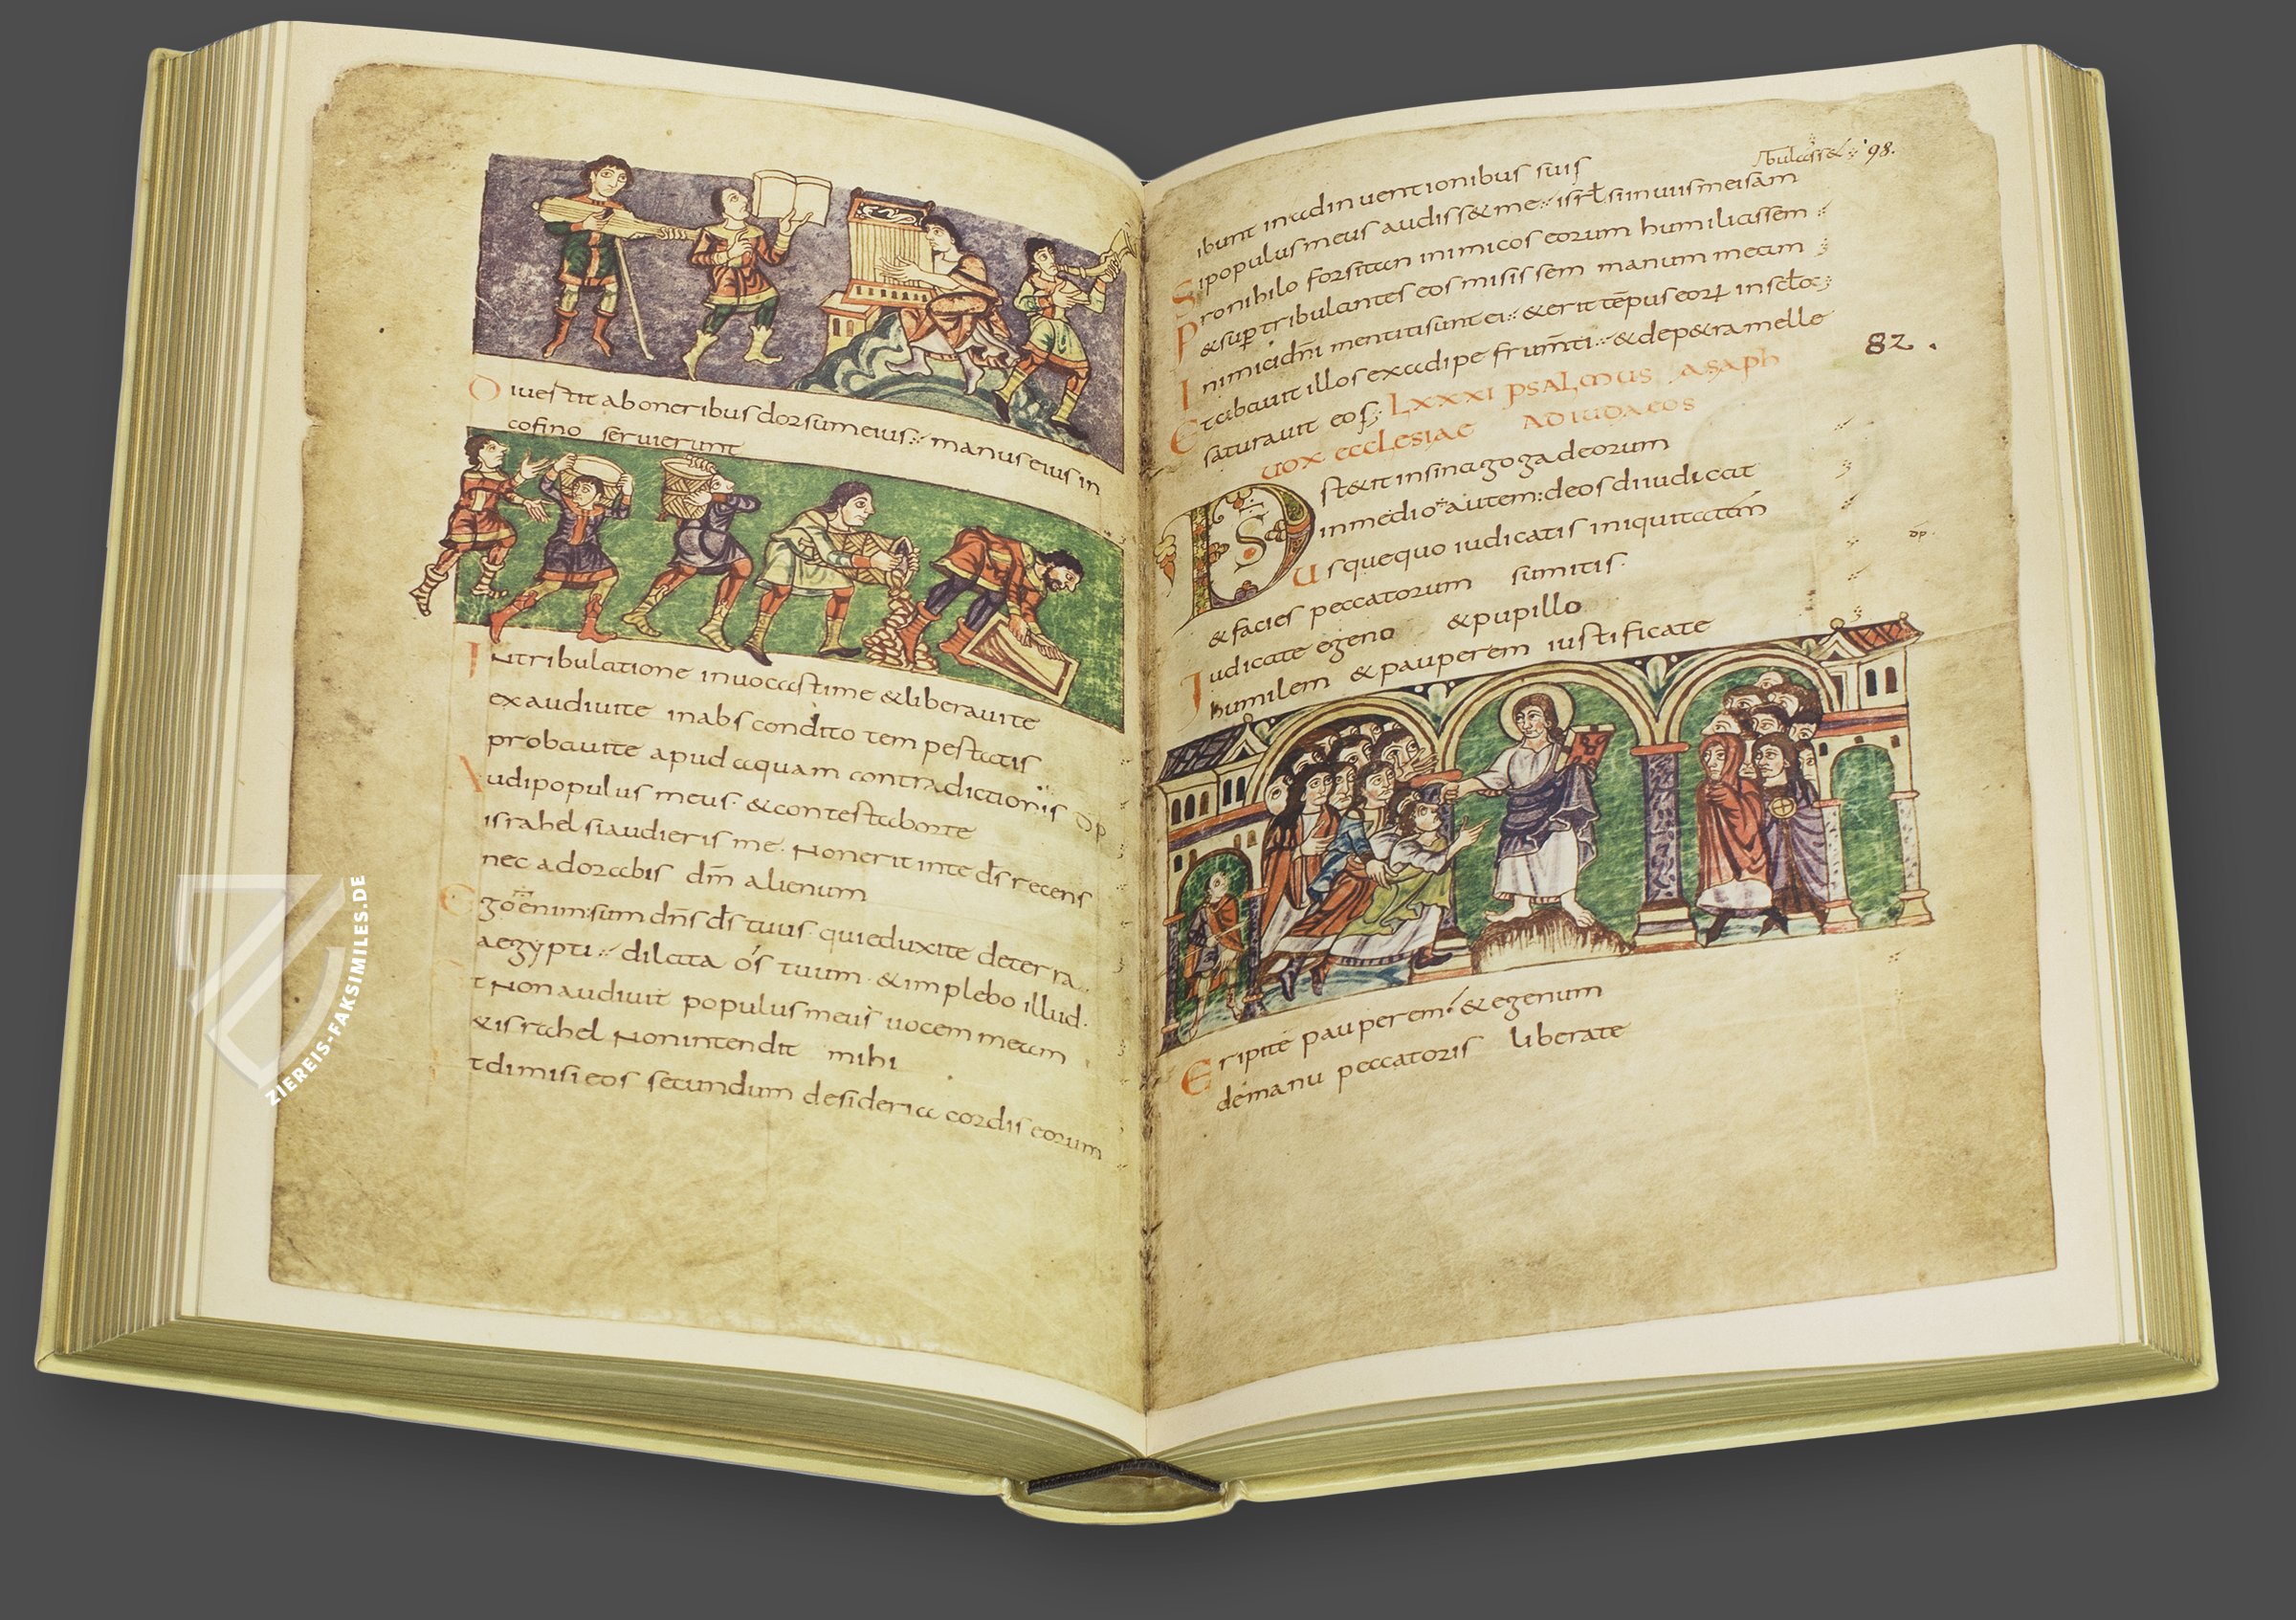 Diuertit aboneribus dorsum eius: manus eius in
cofino seruierunt
Intribulatione inuocastime &liberauite
exaudiuite inabscondito tempestatis
probauite apud aquam contradictionis dp
Audi populus meus · &contestaborte
israhel siaudieris me · Nonerit inte d̄s recens
nec adorabis dn̄m alienum
Ego enim sum dn̄s d̄s tuus · quieduxite deterra
aegypti : dilata os tuum · &implebo illud ·
t Non audiuit populus meus uocem meam
&israhel Nonintendit mihi
tdimisi eos secundum desideria cordis eorum
98.
ibunt inadinuentionibus suis
Sipopulus meus audiss&me : isrl̄ siinuiis meis am
Pronihilo forsitan inimicos eorum humiliassem
&sup tribulantes eos misissem manum meam
Inimicidn̄i mentitisunt ei : &erit tēpus eorꝝ insclō
Etcibauit illos exadipe frum̄ti : &dep&ra melle
saturauit eos ; LXXXI PSALMUS ASAPH
82 .
UOX ECCLESIAE AD IUDAEOS
DS st&it insinagoga deorum
inmedio autem : deos diiudicat
dp ·
Usquequo iudicatis iniquitatem
&facies peccatorum sumitis ·
Iudicate egeno &pupillo
humilem &pauperem iustificate
Eripite pauperem : &egenum
demanu peccatoris liberate
ZIEREIS-FAKSIMILES.DE